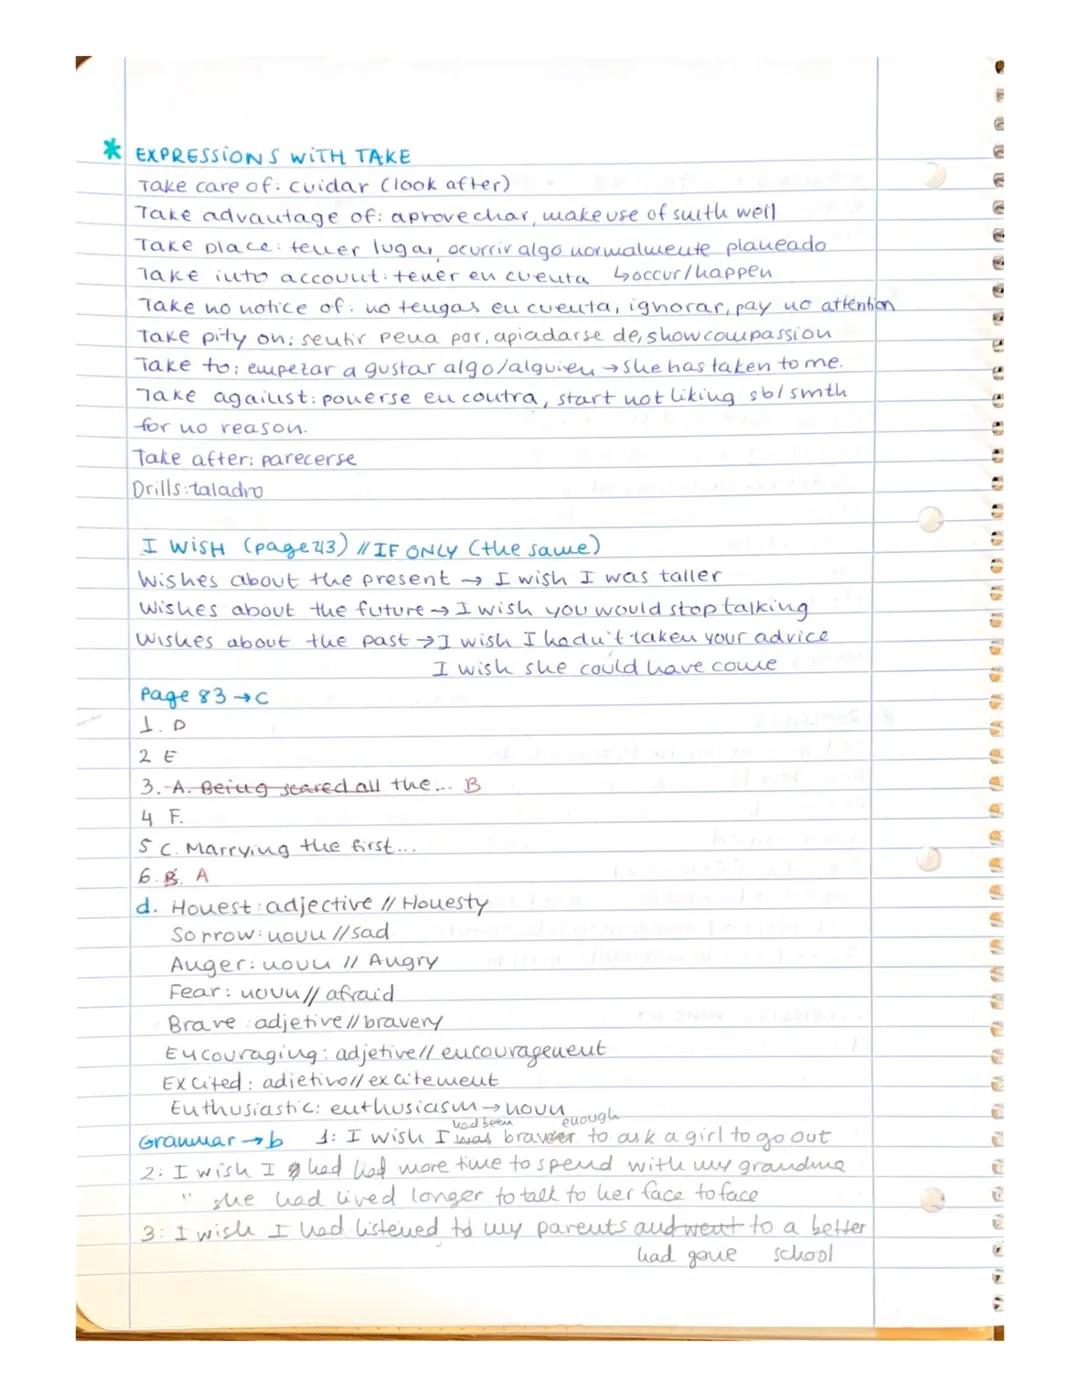 * EXPRESSIONS WITH TAKE
Take care of: cuidar (look after)
Take advantage of: aprovechar, make use of smth well
Take place: tener lugar, ocurrir algo normalmente planeado
Take into account: tener en cuenta ↳occur/happen
Take no notice of: no tengas en cuenta, ignorar, pay no attention
Take pity on: sentir pena por, apiadarse de, show compassion
Take to: empezar a gustar algo/alguien → she has taken to me.
Take against: ponerse en contra, start not liking sb/smth
for no reason.
Take after: parecerse
Drills: taladro
I WISH (page 213) // IF ONLY (the same)
Wishes about the present → I wish I was taller
Wishes about the future → I wish you would stop talking
Wishes about the past → I wish I hadn't taken your advice
I wish she could have come
Page 83 → C
1. D
2 E
3. A. Being scared all the... B
4 F.
5 C. Marrying the first...
6. B. A
d. Honest: adjective // Honesty
Sorrow: noun // sad
Anger: noun // Angry
Fear: noun // afraid
Brave: adjetive // bravery
Encouraging: adjetive // encouragement
Excited: adjetivo // excitement
Enthusiastic: enthusiasm → noun
had been enough
Grammar → b 1: I wish I was braver to ask a girl to go out
2: I wish I had had more time to spend with my grandma
" she had lived longer to talk to her face to face
3: I wish I had listened to my parents and went to a better
had gone school